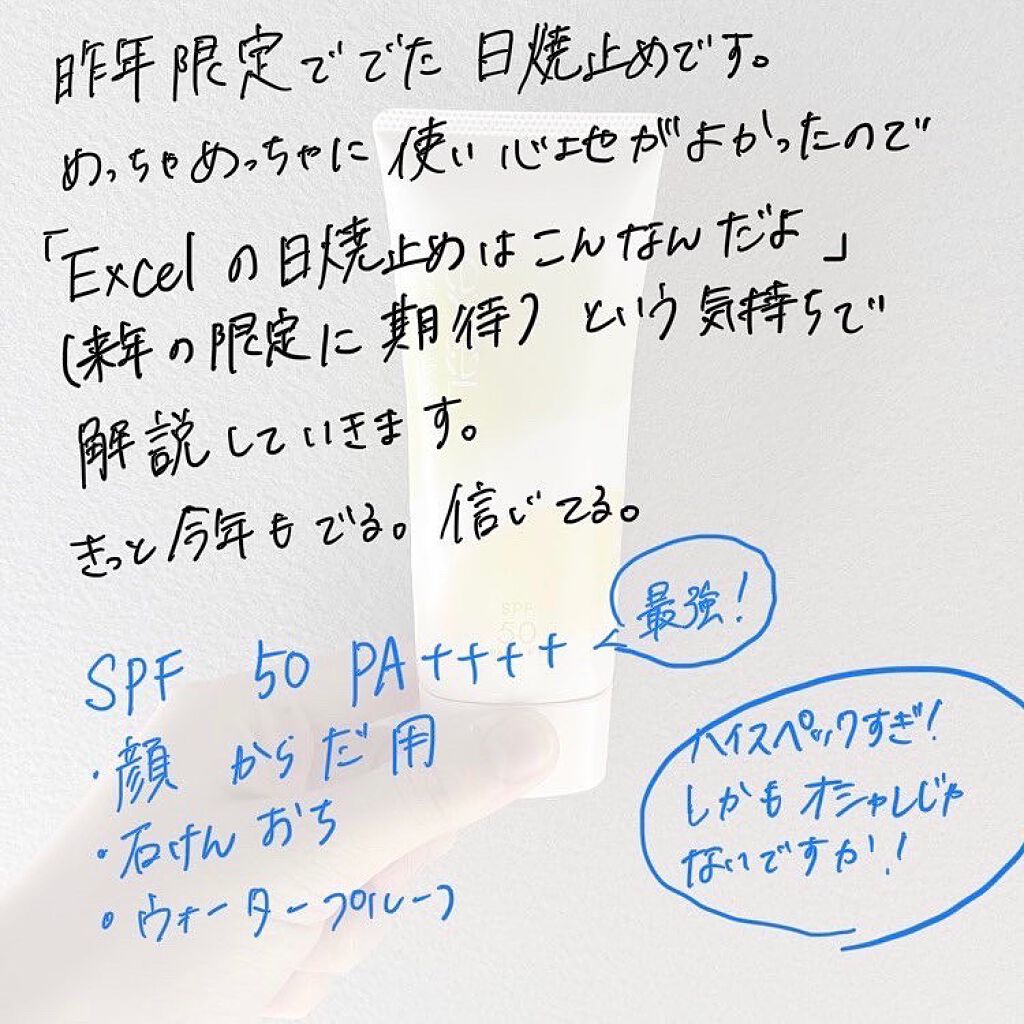 昨年限定ででた 日焼止めです。
めっちゃめっちゃに 使い心地がよかったので
「Excel の日焼止めはこんなんだよ」
(来年の限定に期待) という気持ちで
解説していきます。
きっと今年もでる。信じてる。
最強!
SPF 50 PA++++
・顔 からだ用
・石けんおち
・ウォータープルーフ
ハイスペックすぎ!
しかもオシャレじゃ
ないですか!
SPF
50